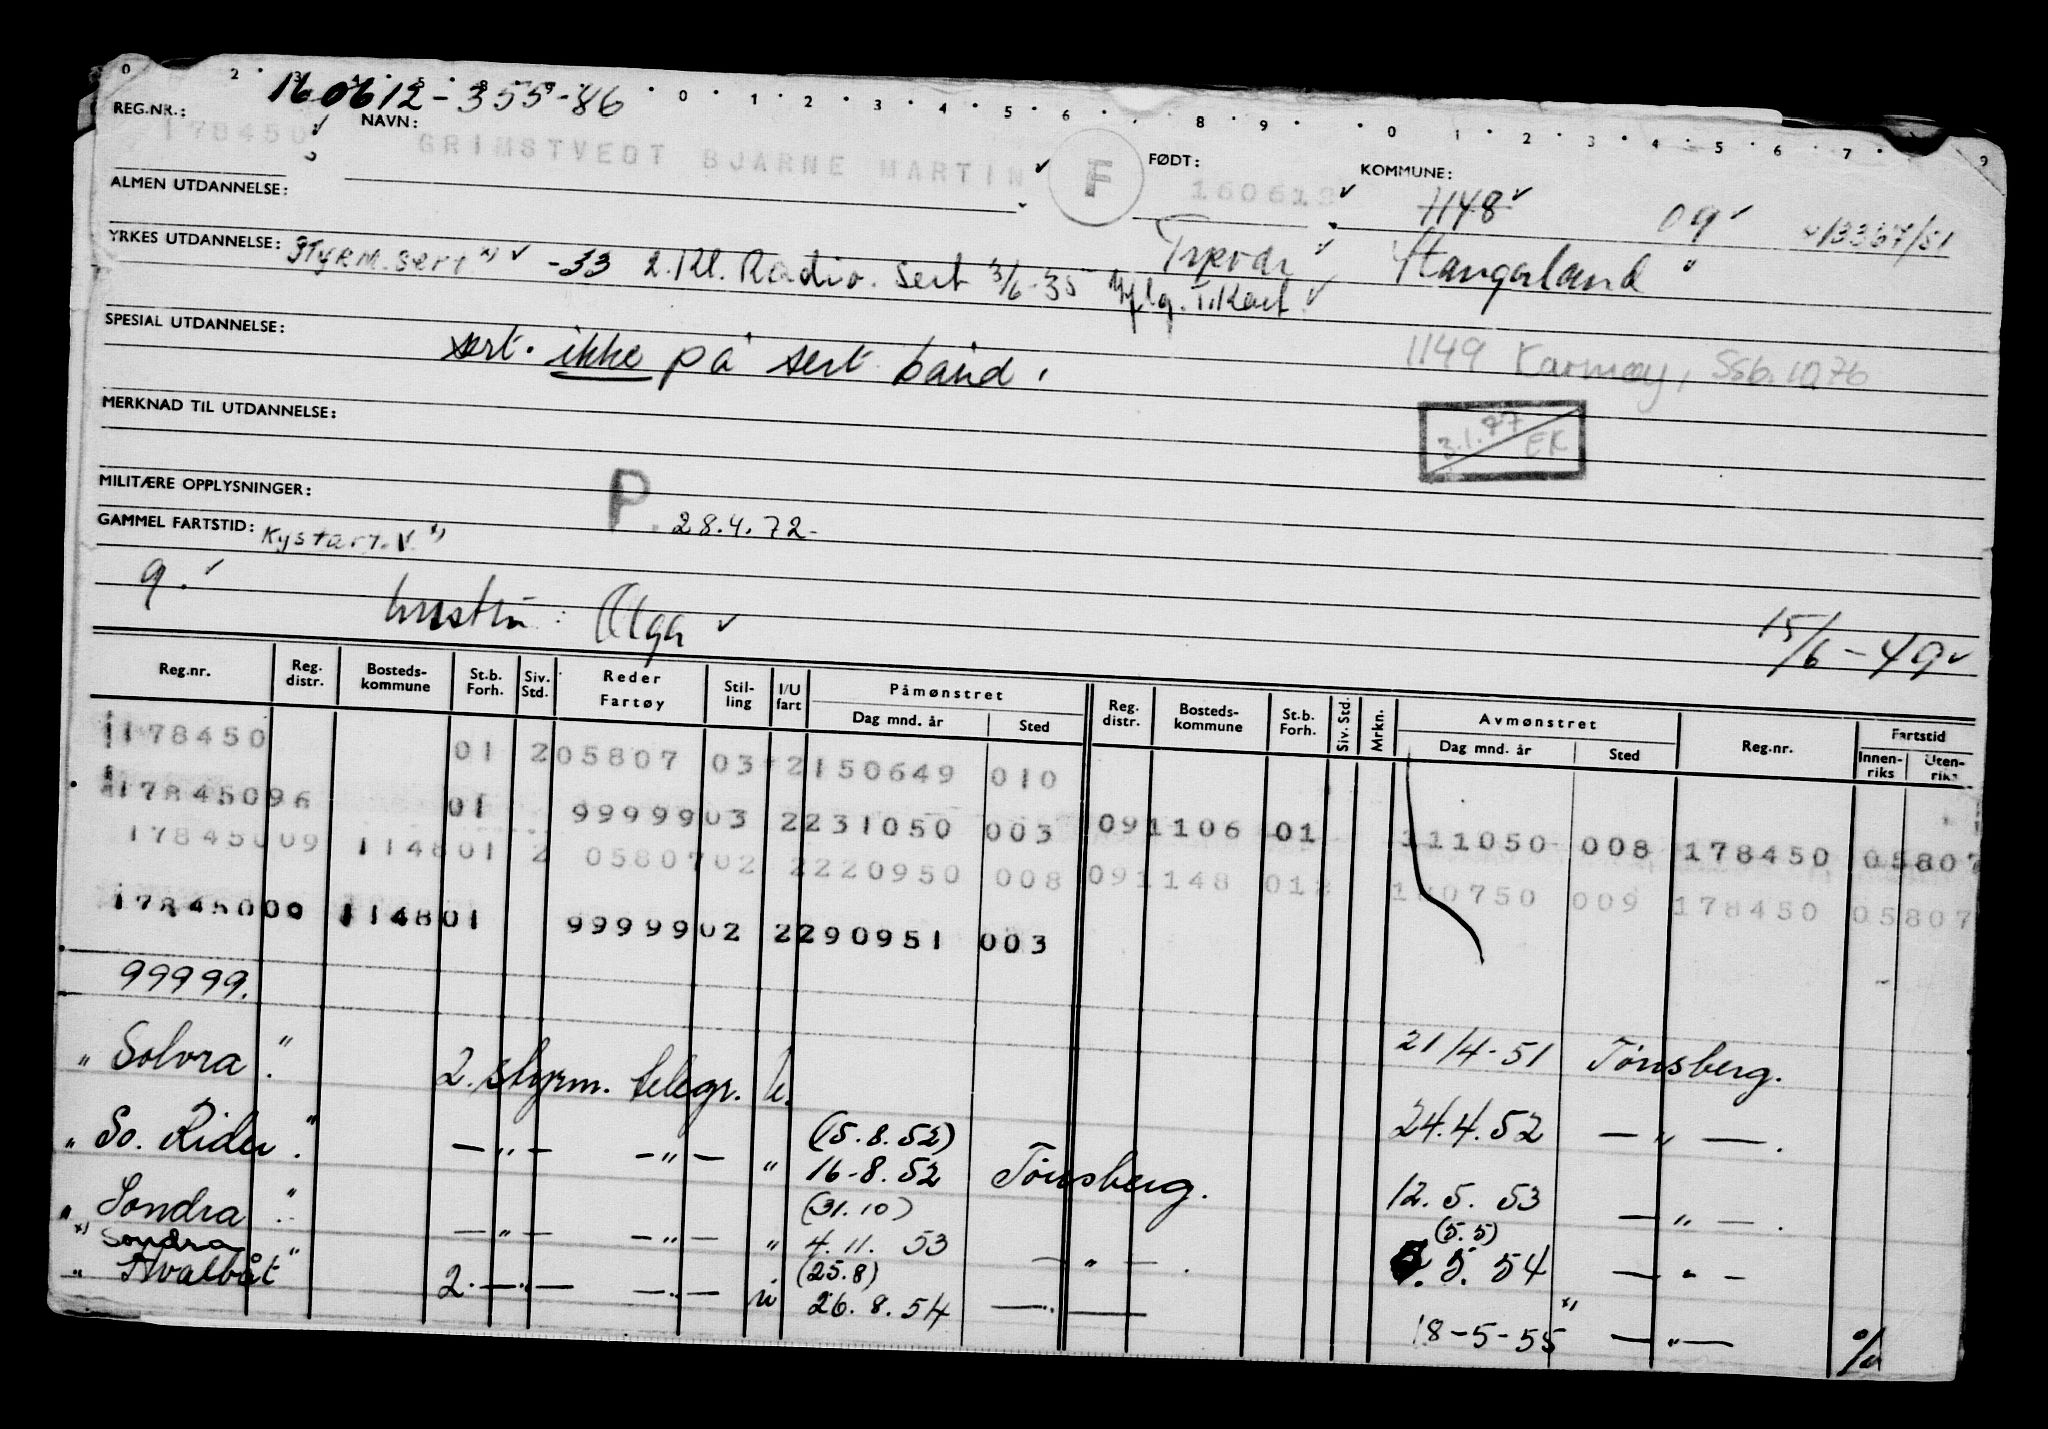 0 2 3 4 5 8 9 0 1 2 3 4 5 6 8 9 0 1 2 3 4 5 6 7 9
160612-355-86
REG.NR.: 178450 NAVN: GRIMSTVEDT BJARNE MARTIN F FØDT: 160612 KOMMUNE: 1148 09 13337/51
ALMEN UTDANNELSE:
YRKES UTDANNELSE: STYRM. sert x) -33 2. Kl. Radio. sert 3/6-35 T.Kort Tysvær Stangeland
SPESIAL UTDANNELSE: sert. ikke på sert bånd. 1149 Karmøy, Ssb. 1976
MERKNAD TIL UTDANNELSE: 3.1.77 EK
MILITÆRE OPPLYSNINGER: P. 28.4.72-
GAMMEL FARTSTID: Kystart. V. x)
9. hustru: Olga 15/6-49
Reg.nr. Reg. distr. Bosteds- kommune St.b. Forh. Siv. Std. Reder Fartøy Stil- ling I/U fart Påmønstret Dag mnd. år Sted Reg. distr. Bosteds- kommune St.b. Forh. Siv. Std. Mrkn. Avmønstret Dag mnd. år Sted Reg.nr. Fartstid Innen- riks Uten- riks
178450 01 2 05807 03 2 150649 010
178450 96 01 99999 03 2 231050 003 09 1106 01 111050 008 178450 05807
178450 09 1148 01 2 05807 02 2 220950 008 09 1148 01 2 180750 009 178450 05807
178450 09 1148 01 99999 02 2 290951 003
99999.
" Solvra ". 2. styrm. telegr. u. 21/4-51 Tønsberg.
" So. Rider ". —"— —"— " (15.8.52) 16-8.52 Tønsberg. 24.4.52 —"—.
" Sondra ". —"— —"— " (31.10) 4.11. 53 —"—. 12.5. 53 —"—.
x) Sondra
" Hvalbåt " 2. —"— —"— u (25.8) 26.8.54 —"— (5.5) 6.5.54 —"—
x) 18-5-55 —"—